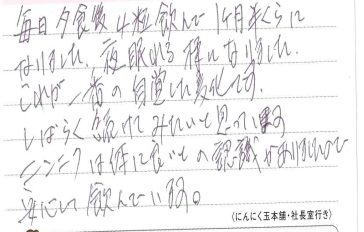 毎日夕食後4粒飲んで1ヶ月半くらいに
なりました。夜眠れる様になりました。
これが一番の自覚した変化です。
しばらく続けてみたいと思っています
ニンニクは体に良いとの認識がありましたので
安心して飲んでいます。
(にんにく玉本舗・社長室行き)